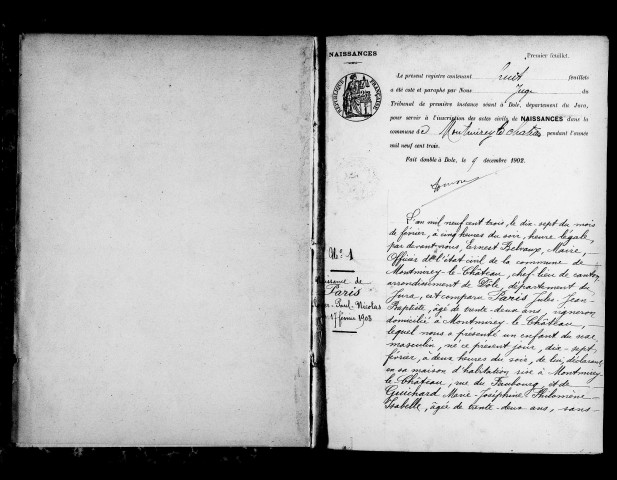 NAISSANCES
Premier feuillet.
RÉPUBLIQUE FRANÇAISE
Le présent registre contenant huit feuillets
a été coté et paraphé par Nous Juge du
Tribunal de première instance séant à Dole, département du Jura,
pour servir à l'inscription des actes civils de NAISSANCES dans la
commune de Montmirey le Château pendant l'année
mil neuf cent trois.
Fait double à Dole, le 9 décembre 1902.
N° 1
de
Paris
Paul-Nicolas
17 février 1903
L'an mil neuf cent trois, le dix-sept du mois
de février, à cinq heures du soir, heure légale,
par devant nous, Ernest Maire,
Officier de l'état civil de la commune de
Montmirey-le-Château, chef-lieu de canton,
arrondissement de Dôle, département du
Jura, est comparu Paris Jules-Jean-
Baptiste, âgé de trente-deux ans, vigneron
domicilié à Montmirey-le-Château,
lequel nous a présenté un enfant du sexe
masculin, né ce présent jour, dix-sept
février, à deux heures du soir, de lui, déclarant
en sa maison d'habitation sise à Montmirey
le-Château, rue du Faubourg et de
Guichard Marie-Joséphine Philomène
Isabelle, âgée de trente-deux ans, sans-